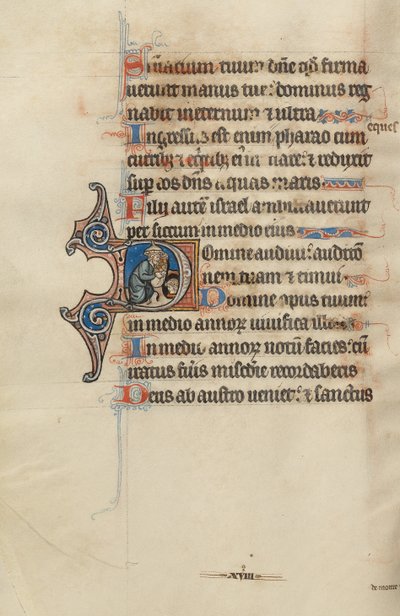 tuum dn̄e qd̄ firma
uerunt manus tue: dominus reg
nabit ineternum & ultra.
Ingressus est enim pharao cum
eques
curribȝ & equitibȝ ei' in mare: & reduxit
sup̄ eos dn̄s aquas maris
Filii autē israel ambulauerunt
per siccum in medio eius
Domine audiui auditio
nem tuam & timui
Domine opus tuum
in medio annorꝝ uiuifica illud
In medio annorꝝ notū facies: cū
iratus fūis mīsc̄die recordaberis
Deus ab austro ueniet: & sanctus
2
XVIII
de monte